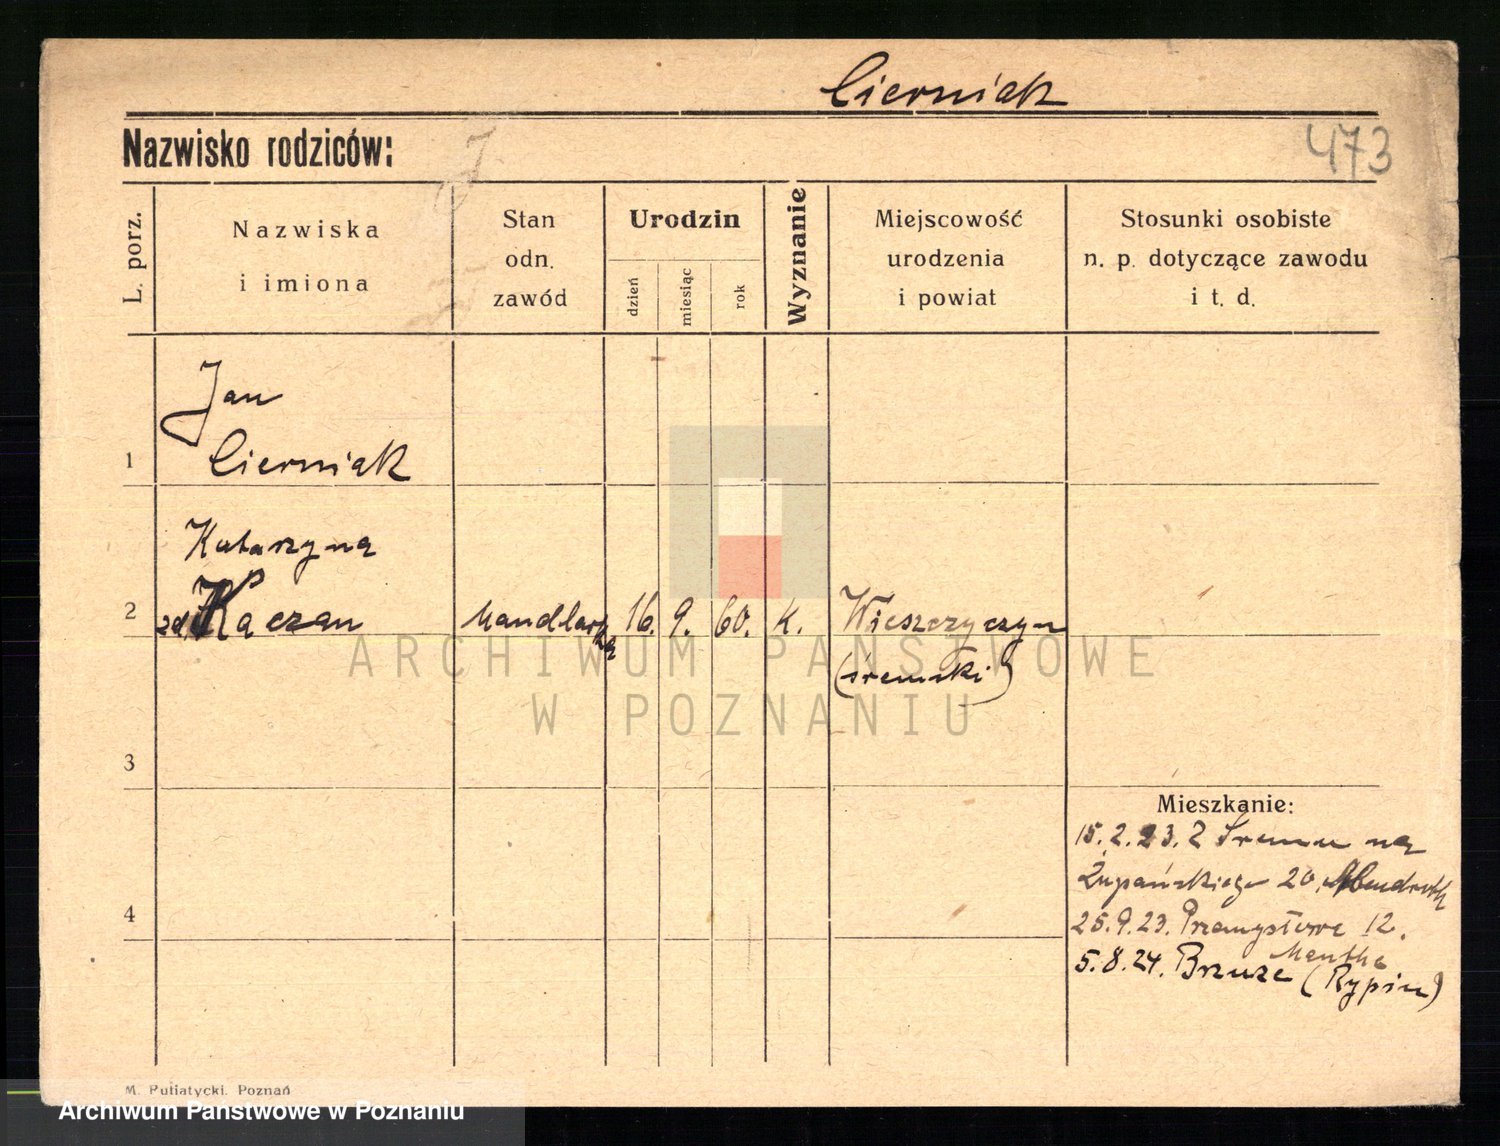 Cierniak
Nazwisko rodziców:
473
L. porz.
Nazwiska
i imiona
Stan
odn.
zawód
Urodzin
dzień
miesiąc
rok
Wyznanie
Miejscowość
urodzenia
i powiat
Stosunki osobiste
n. p. dotyczące zawodu
i t. d.
Jan
1 Cierniak
Katarzyna
2 zd. Kaczan handlarka 16. 9. 60. K. Wieszczyczyn
(śremski)
ARCHIWUM PAŃSTWOWE
W POZNANIU
3
Mieszkanie:
15.2.23. Z Śremu na
Żupańskiego 20
4
25.9.23. Przemysłowa 12.
Menthe
5.8.24. Brzuze (Rypin)
M. Putiatycki. Poznań
Archiwum Państwowe w Poznaniu